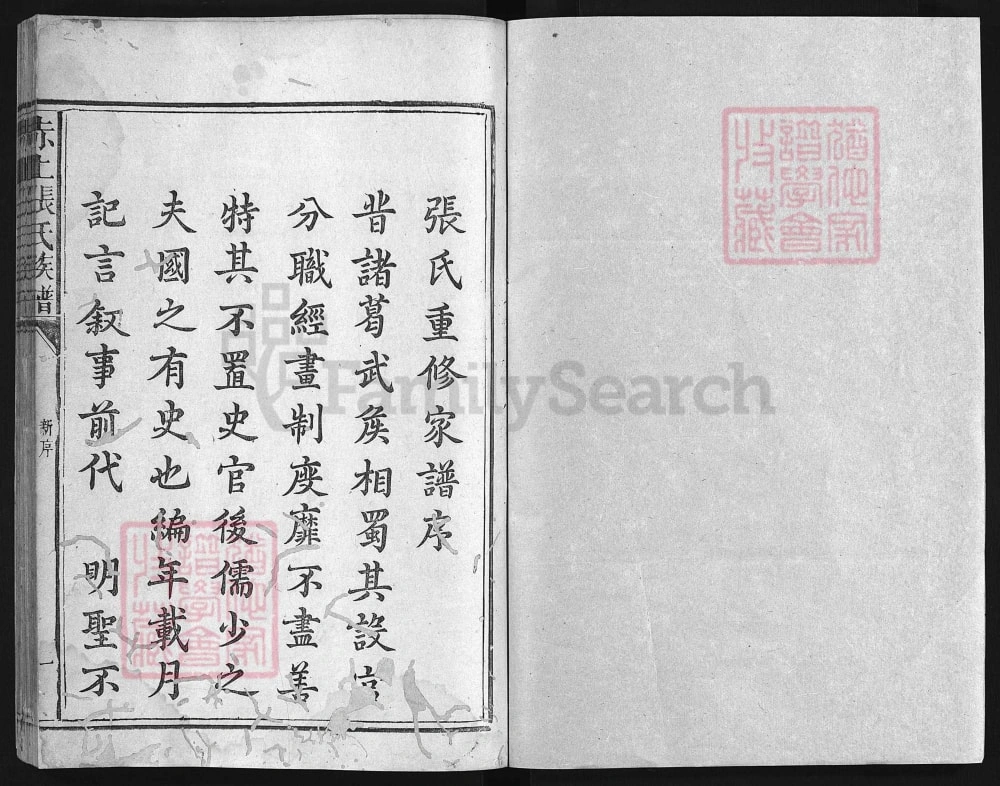 張氏重修家譜序
昔諸葛武侯相蜀其設官
分職經畫制度靡不盡善
特其不置史官後儒少之
夫國之有史也編年載月
記言叙事前代　明聖不
赤上張氏族譜
新序
一
譜學會
收藏
譜學會
收藏
FamilySearch